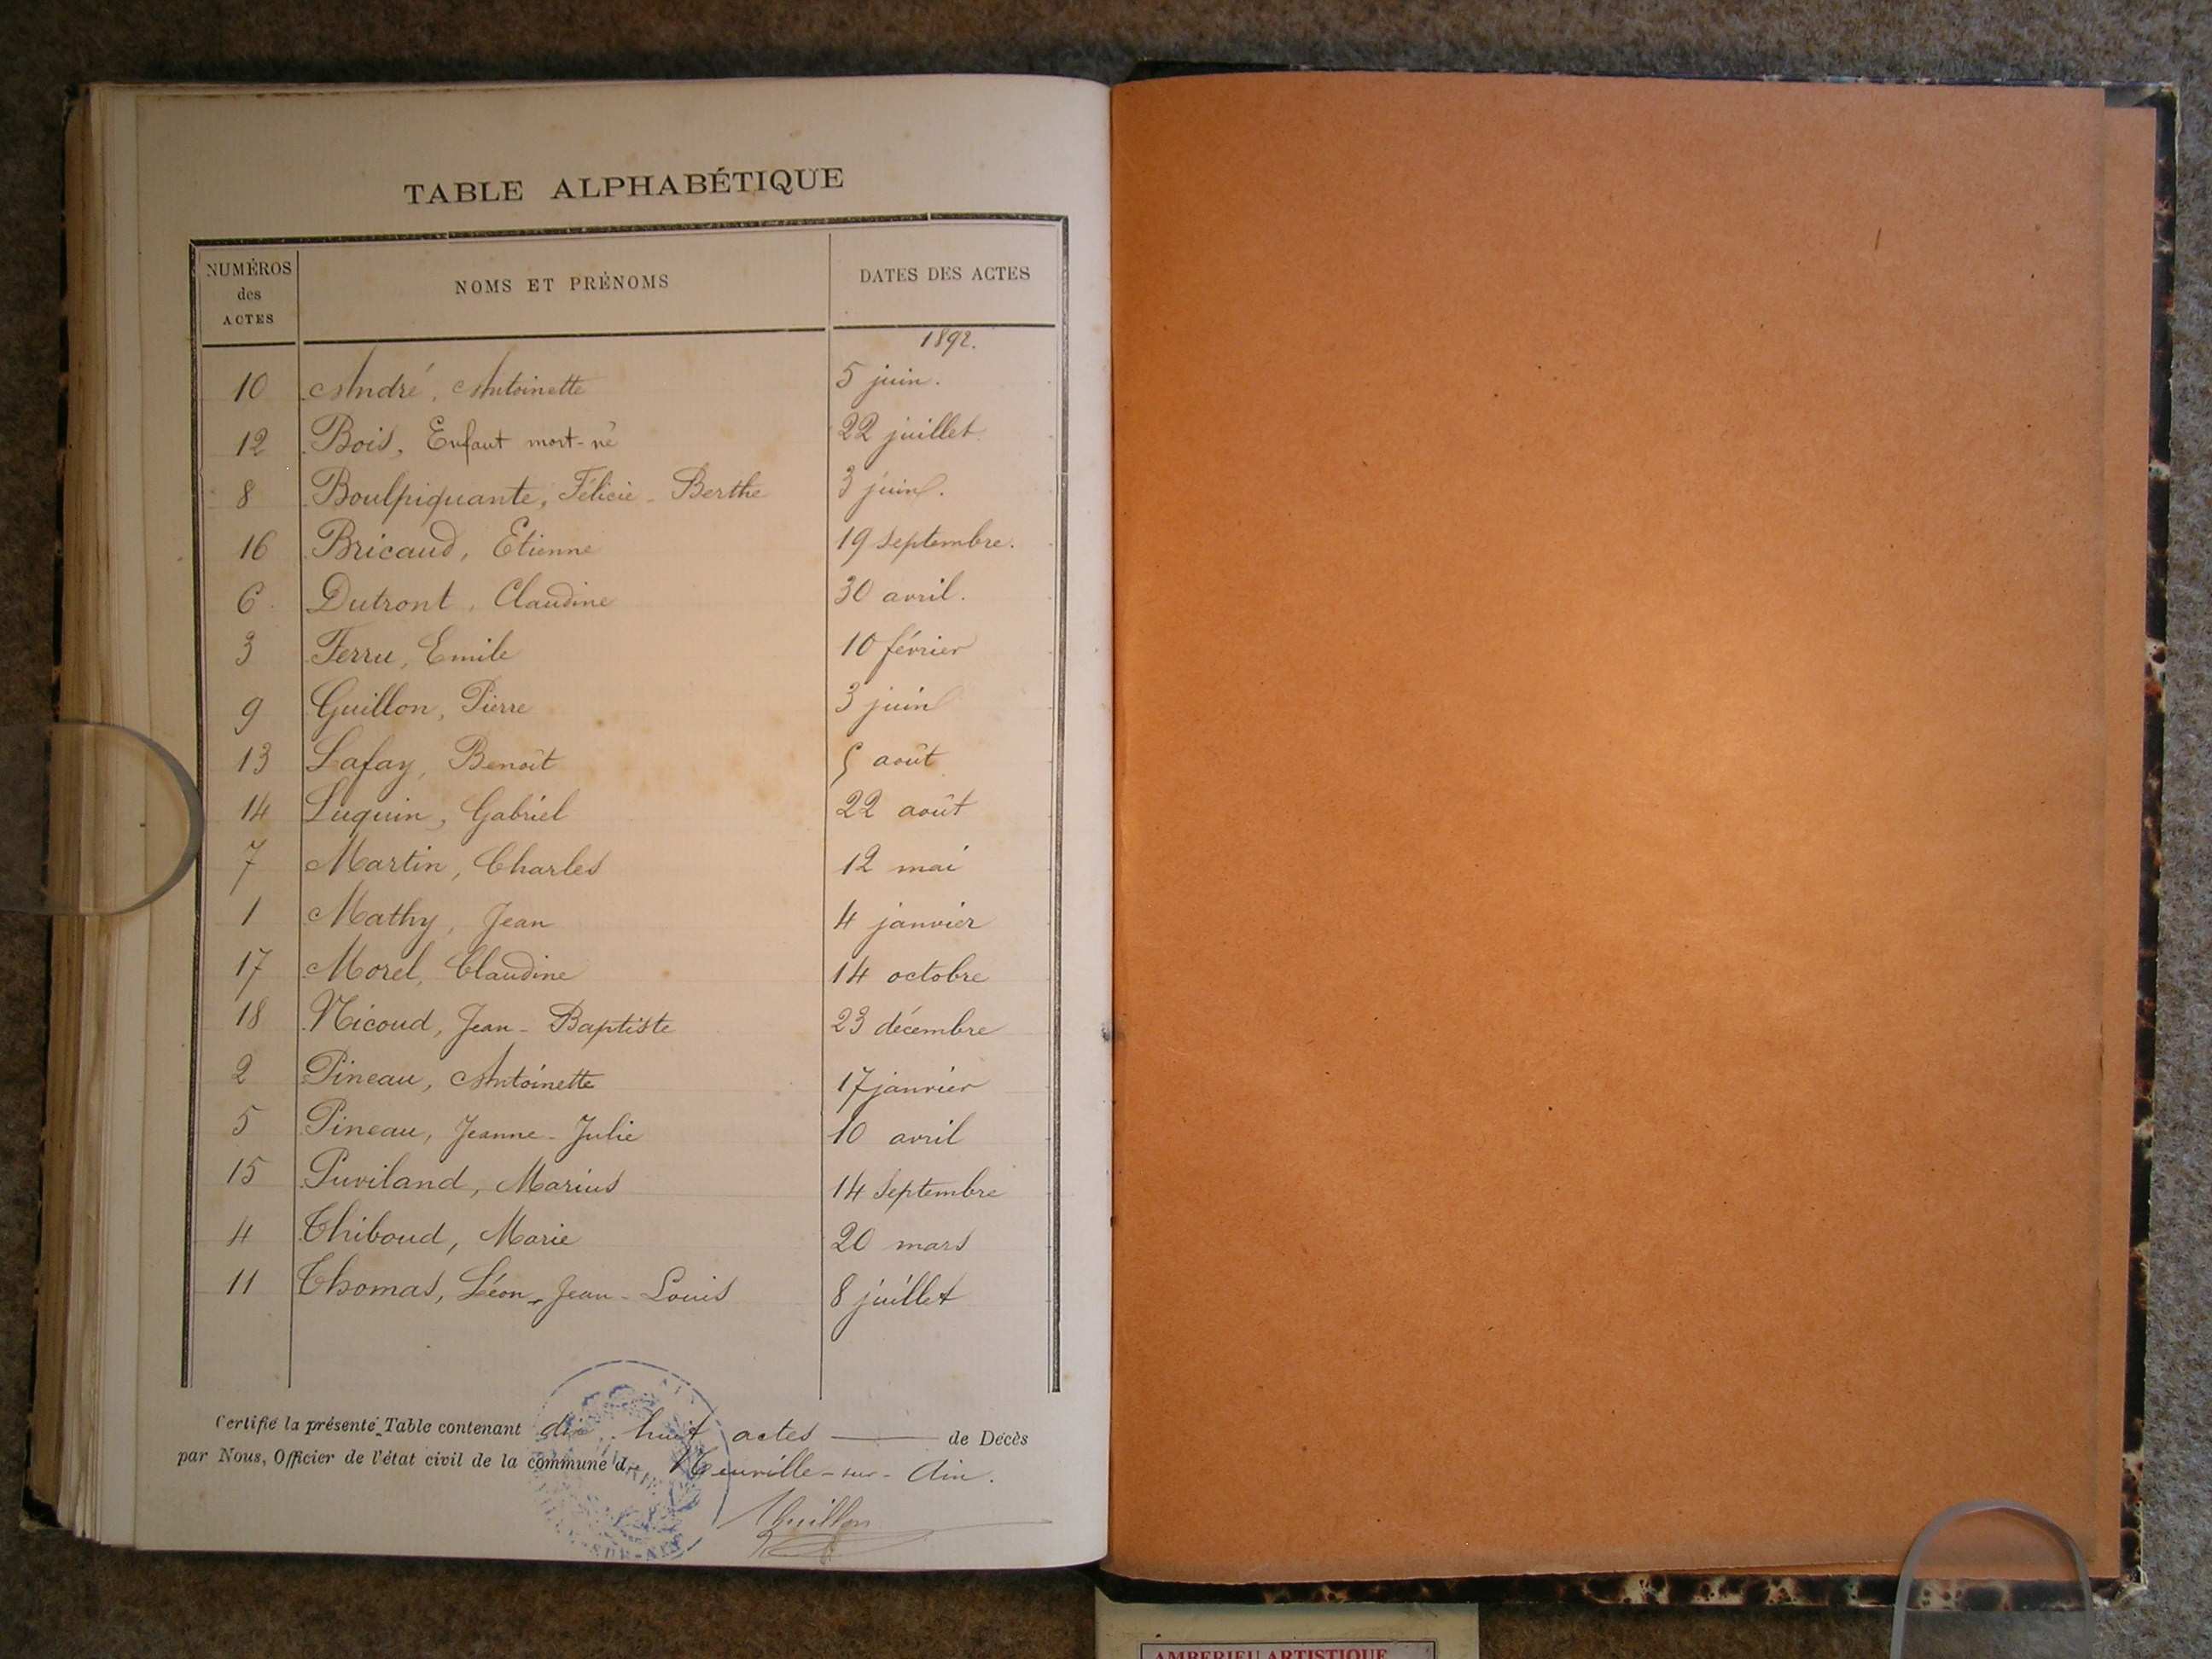 TABLE ALPHABÉTIQUE
NUMÉROS des ACTES NOMS ET PRÉNOMS DATES DES ACTES
1892.
10 André, Antoinette 5 juin.
12 Bois, Enfant mort-né 22 juillet
8 Boulpiquante, Félicie-Berthe 3 juin.
16 Bricaud, Etienne 19 septembre.
6 Dutront, Claudine 30 avril.
3 Ferru, Emile 10 février
9 Guillon, Pierre 3 juin
13 Lafay, Benoît 5 août
14 Luquin, Gabriel 22 août
7 Martin, Charles 12 mai
1 Mathy, Jean 4 janvier
17 Morel, Claudine 14 octobre
18 Nicoud, Jean-Baptiste 23 décembre
2 Pineau, Antoinette 17 janvier
5 Pineau, Jeanne-Julie 10 avril
15 Puviland, Marius 14 septembre
4 Thiboud, Marie 20 mars
11 Thomas, Léon-Jean-Louis 8 juillet
Certifié la présente Table contenant dix-huit actes de Décès
par Nous, Officier de l'état civil de la commune de Neuville-sur-Ain.
AMBERIEU ARTISTIQUE